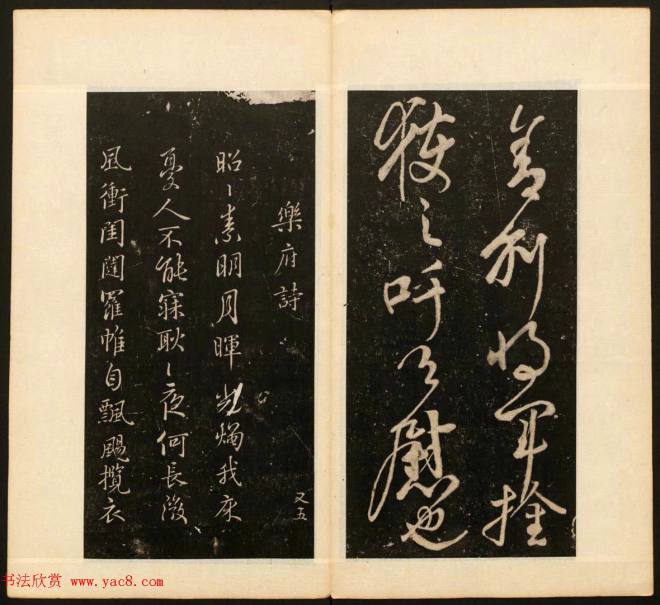 利將軍
獲之吁可慰也
樂府詩
又五
昭〻素明月暉光燭我床
憂人不能寐耿〻夜何長微
風衝閨闥羅帷自飄颺攬衣
书法欣赏 www.yac8.com